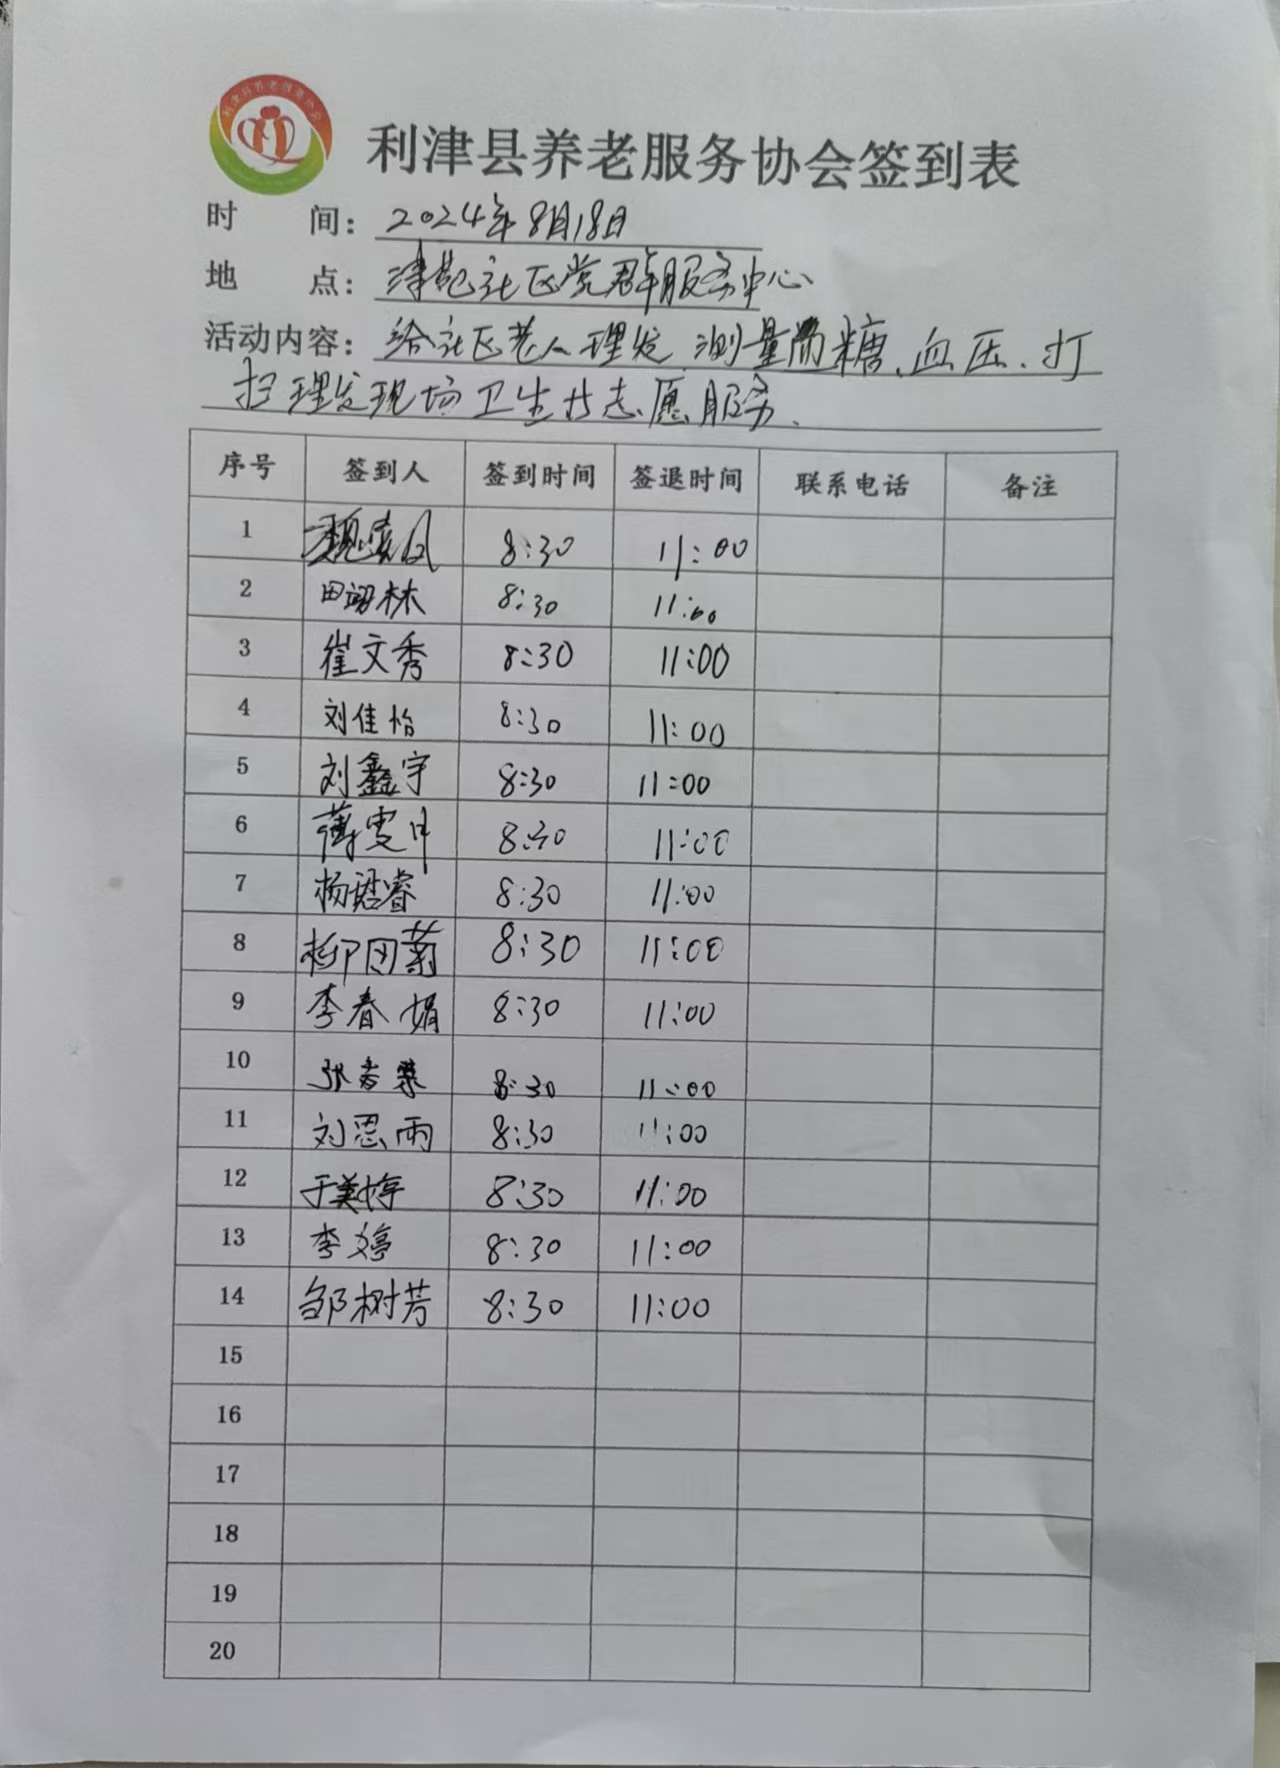 利津县养老服务协会
利津县养老服务协会签到表
时 间: 2024年8月18日
地 点: 津苑社区党群服务中心
活动内容: 给社区老人理发 测量 糖、血压、打
扫理发现场卫生 志愿服务、
序号 签到人 签到时间 签退时间 联系电话 备注
1 魏 8:30 11:00
2 田 林 8:30 11:00
3 崔文秀 8:30 11:00
4 刘佳怡 8:30 11:00
5 刘鑫宇 8:30 11:00
6 薄雯 8:30 11:00
7 杨珺睿 8:30 11:00
8 柳 菊 8:30 11:00
9 李春娟 8:30 11:00
10 张 8:30 11:00
11 刘思雨 8:30 11:00
12 于美婷 8:30 11:00
13 李婷 8:30 11:00
14 邹树芳 8:30 11:00
15
16
17
18
19
20